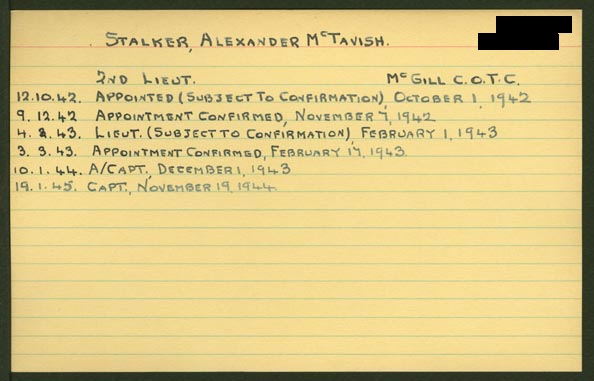 STALKER, ALEXANDER McTAVISH.
2ND LIEUT. McGILL C.O.T.C.
12.10.42. APPOINTED (SUBJECT TO CONFIRMATION), OCTOBER 1, 1942
9.12.42 APPOINTMENT CONFIRMED, NOVEMBER 7, 1942
4.2.43. LIEUT. (SUBJECT TO CONFIRMATION), FEBRUARY 1, 1943
3.3.43. APPOINTMENT CONFIRMED, FEBRUARY 17, 1943
10.1.44. A/CAPT., DECEMBER 1, 1943
19.1.45. CAPT., NOVEMBER 19, 1944.